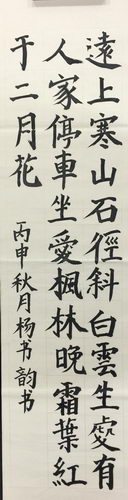 遠上寒山石徑斜白雲生處有
人家停車坐愛楓林晚霜葉紅
于二月花
丙申秋月杨书韵书